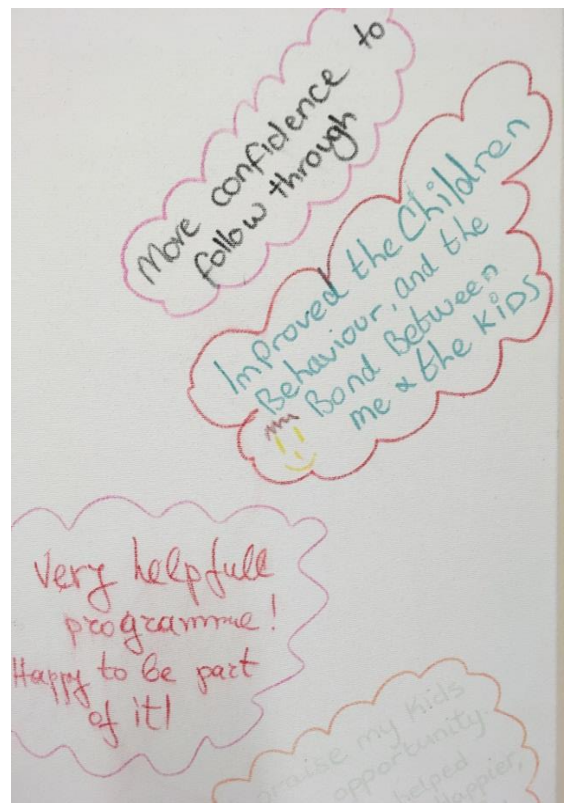 More confidence to
follow through
Improved the Children
Behaviour, and the
Bond Between
me & the KiDS
Very helpfull
programme!
Happy to be part
of it!
praise my Kids
opportunity.
helped
Happier,